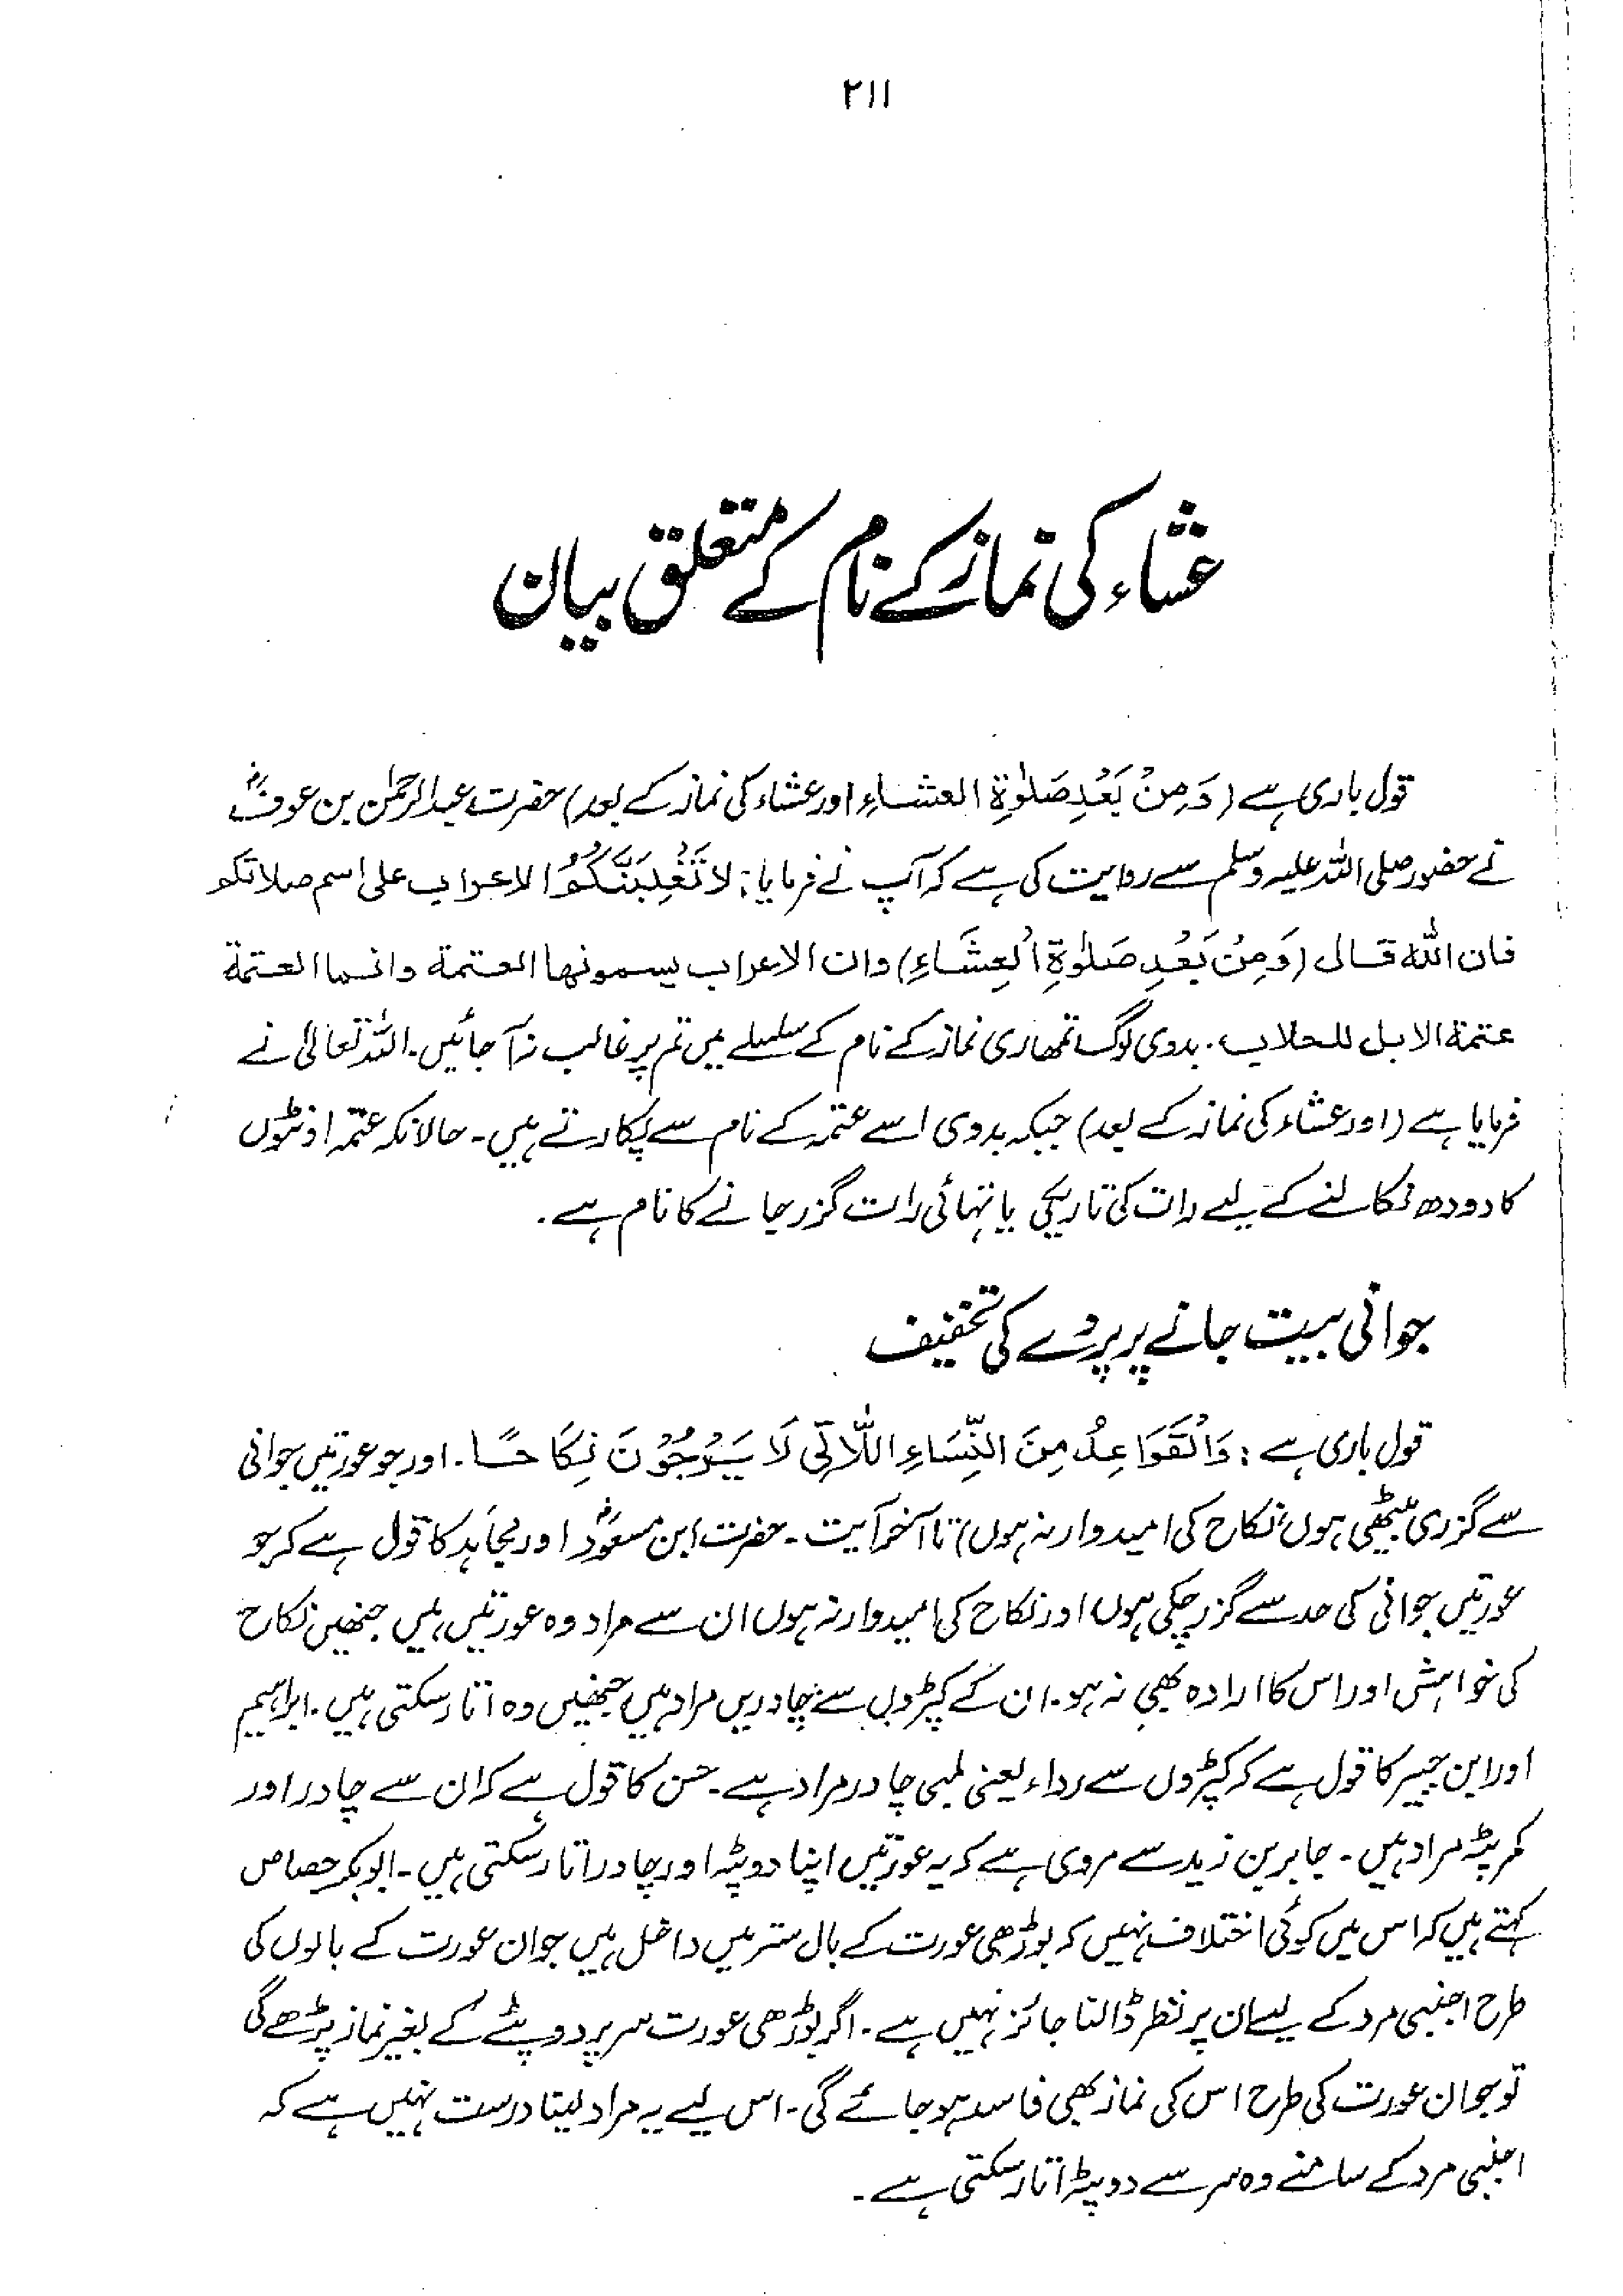 ۲۱۱
عشاء کی نماز کے نام کے متعلق بیان
قول باری ہے (وَمِنْ بَعْدِ صَلٰوةِ العشاءِ اور عشاء کی نماز کے بعد) حضرت عبدالرحمٰن بن عوفؓ
نے حضور صلی اللہ علیہ وسلم سے روایت کی ہے کہ آپ نے فرمایا: لا تَغْلِبَنَّكُمُ الاعراب على اسم صلاتكم
فان اللهَ قال (وَمِنْ بَعْدِ صَلٰوةِ الْعِشَاءِ) وان الاعراب يسمونها العتمة وانما العتمة
عتمة الابل للحلاب۔ بدوی لوگ تمھاری نماز کے نام کے سلسلے میں تم پر غالب نہ آ جائیں۔ اللہ تعالیٰ نے
فرمایا ہے (اور عشاء کی نماز کے بعد) جبکہ بدوی اسے عتمہ کے نام سے پکارتے ہیں۔ حالانکہ عتمہ اونٹوں
کا دودھ نکالنے کے لیے رات کی تاریکی یا تہائی رات گزر جانے کا نام ہے۔
جوانی بیت جانے پر پردے کی تخفیف
قول باری ہے: وَالْقَوَاعِدُ مِنَ النِّسَاءِ اللَّاتِي لَا يَرْجُوْنَ نِكَاحًا۔ اور جو عورتیں جوانی
سے گزری بیٹھی ہوں، نکاح کی امیدوار نہ ہوں) تا آخر آیت۔ حضرت ابن مسعودؓ اور مجاہد کا قول ہے کہ جو
عورتیں جوانی کی حد سے گزر چکی ہوں اور نکاح کی امیدوار نہ ہوں ان سے مراد وہ عورتیں ہیں جنھیں نکاح
کی خواہش اور اس کا ارادہ بھی نہ ہو۔ ان کے کپڑوں سے چادریں مراد ہیں جنھیں وہ اتار سکتی ہیں۔ ابراہیم
اور ابن جبیر کا قول ہے کہ کپڑوں سے رداء یعنی لمبی چادر مراد ہے۔ حسن کا قول ہے کہ ان سے چادر اور
کمر پٹہ مراد ہیں۔ جابر بن زید سے مروی ہے کہ یہ عورتیں اپنا دوپٹہ اور چادر اتار سکتی ہیں۔ ابوبکر جصاص
کہتے ہیں کہ اس میں کوئی اختلاف نہیں کہ بوڑھی عورت کے بال ستر میں داخل ہیں جوان عورت کے بالوں کی
طرح اجنبی مرد کے لیے ان پر نظر ڈالنا جائز نہیں ہے۔ اگر بوڑھی عورت سر پر دوپٹے کے بغیر نماز پڑھے گی
تو جوان عورت کی طرح اس کی نماز بھی فاسد ہو جائے گی۔ اس لیے یہ مراد لینا درست نہیں ہے کہ
اجنبی مرد کے سامنے وہ سر سے دوپٹہ اتار سکتی ہے۔